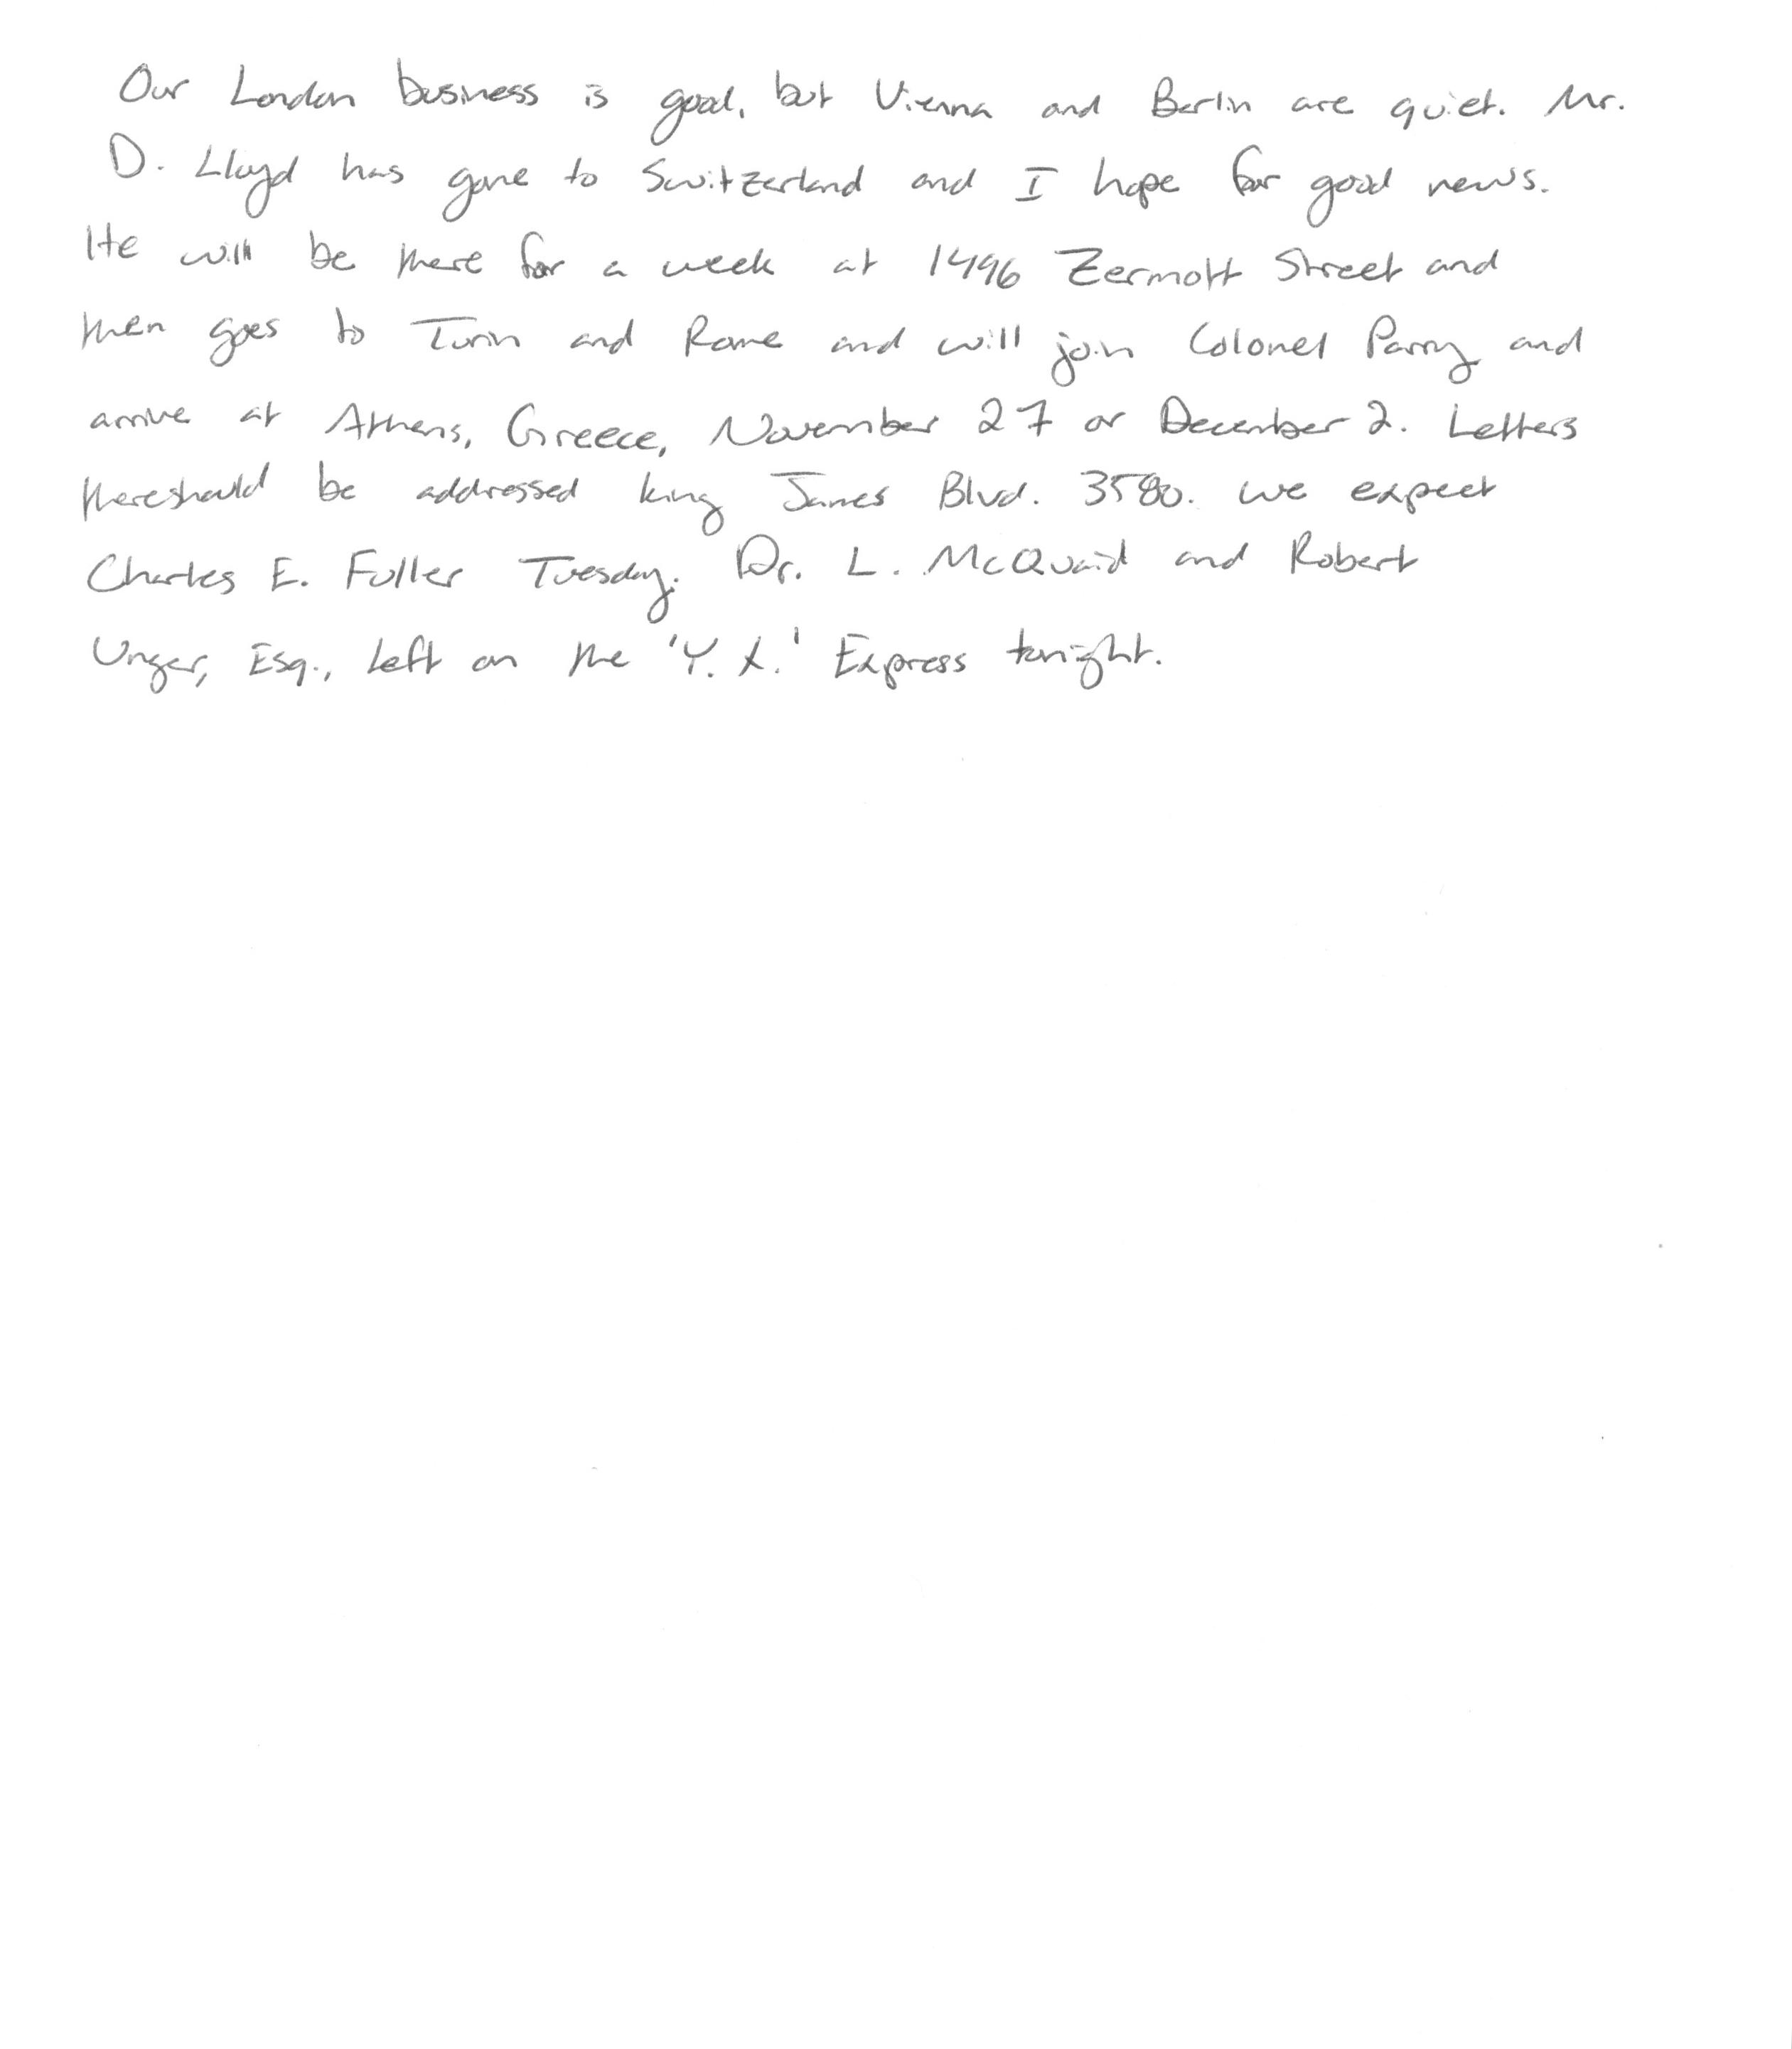 Our London business is good, but Vienna and Berlin are quiet. Mr.
D. Lloyd has gone to Switzerland and I hope for good news.
He will be there for a week at 1496 Zermott Street and
then goes to Turin and Rome and will join Colonel Parry and
arrive at Athens, Greece, November 27 or December 2. Letters
thereshould be addressed King James Blvd. 3580. We expect
Charles E. Fuller Tuesday. Dr. L. McQuaid and Robert
Unger, Esq., left on the 'Y. X.' Express tonight.